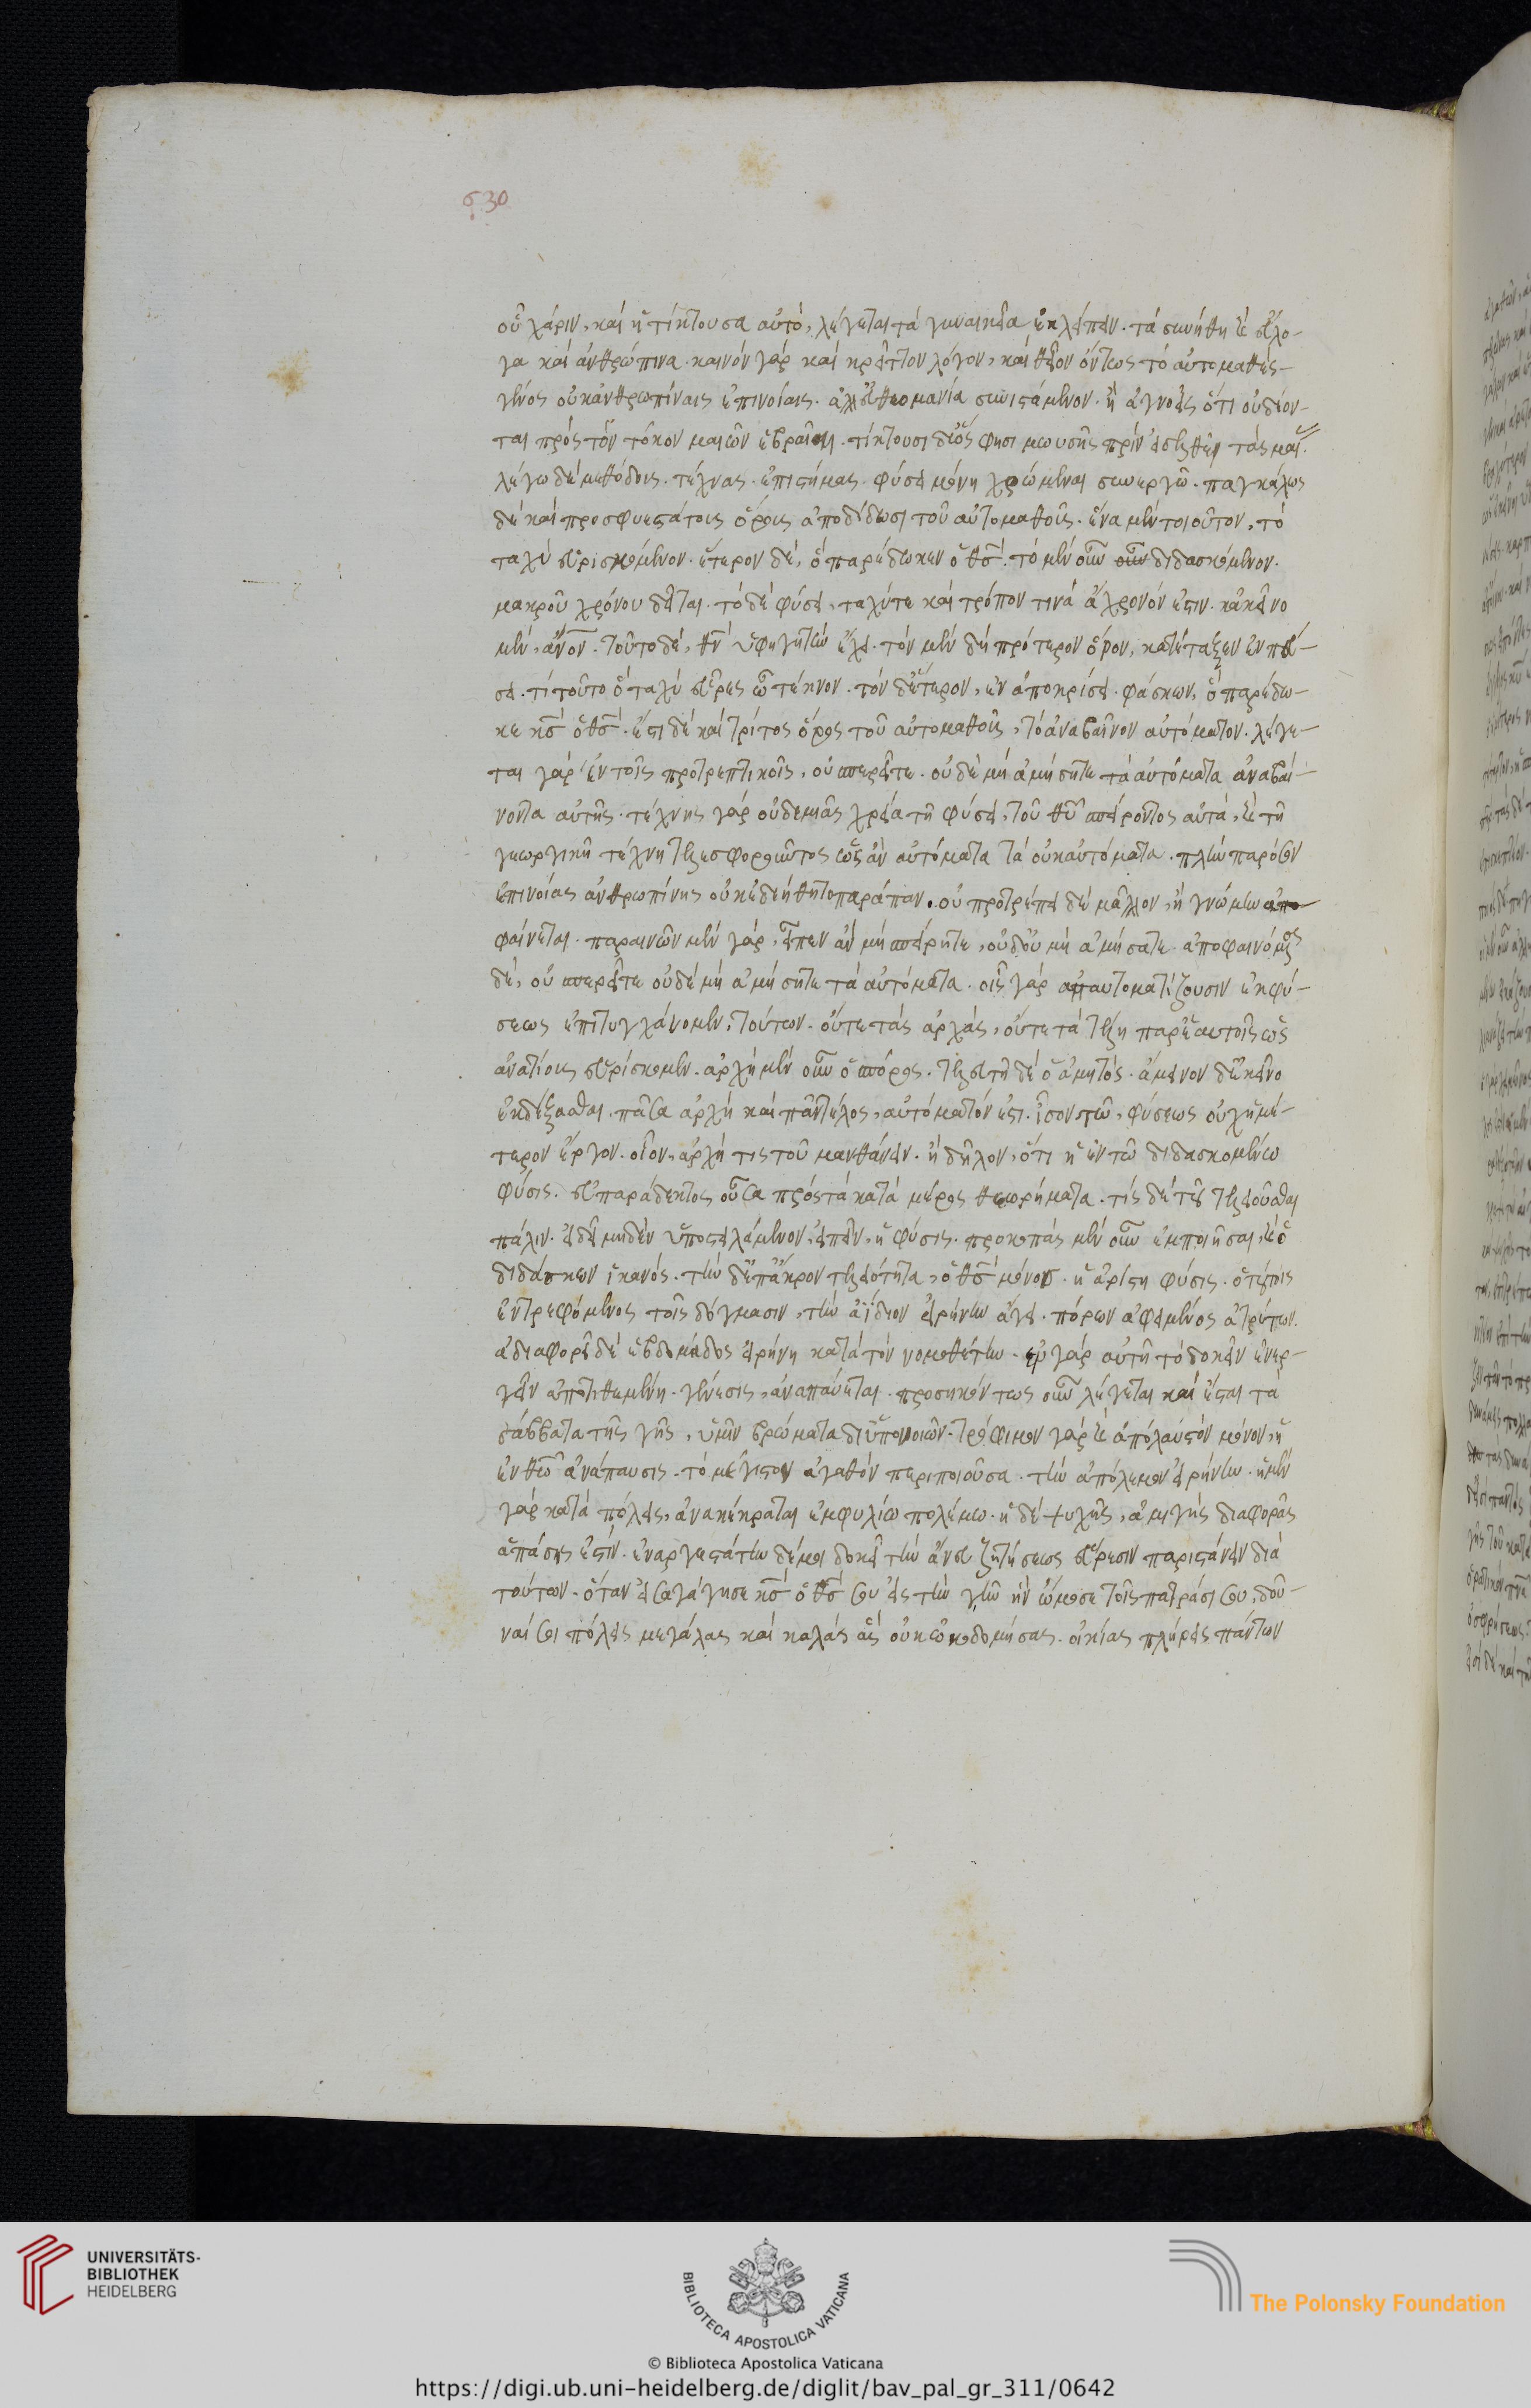 630
οὗ χάριν, καὶ ἡ τίκτουσα αὐτὸ, λέγεται τὰ γυναικεῖα ἐκλείπειν. τὰ συνήθη καὶ εὔλο-
γα καὶ ἀνθρώπινα. καινὸν γὰρ καὶ κρεῖττον λόγου, καὶ θεῖον ὄντως τὸ αὐτομαθὲς
γένος οὐκ ἀνθρωπίναις ἐπινοίαις. ἀλλ' ἐνθεομανία συνιστάμενον. ἢ ἀγνοεῖς ὅτι οὐ δέον-
ται πρὸς τὸν τόκον μαιῶν ἑβραῖαι. τίκτουσι δ' ὥς φησι μωυσῆς πρὶν εἰσελθεῖν τὰς μαί.
λέγω δὲ μεθόδους. τέχνας. ἐπιστήμας. φύσει μόνη χρώμεναι συνεργῶ. παγκάλως
δὲ καὶ προσφυεστάτους ὅρους ἀποδίδωσι τοῦ αὐτομαθοῦς. ἕνα μὲν τοιοῦτον, τὸ
ταχὺ εὑρισκόμενον. ἕτερον δὲ, ὃ παρέδωκεν ὁ θσ. τὸ μὲν οὖν οὖν διδασκόμενον.
μακροῦ χρόνου δεῖται. τὸ δὲ φύσει, ταχύ τε καὶ τρόπον τινὰ ἄχρονόν ἐστιν. κἀκεῖνο
μὲν, ἄνον. τοῦτο δὲ, θν ὑφηγητὴν ἔχει. τὸν μὲν δὴ πρότερον ὅρον, κατέταξεν ἐν πεύ-
σει. τί τοῦτο ὃ ταχὺ εὗρες ὦ τέκνον. τὸν δεύτερον, ἐν ἀποκρίσει. φάσκων, ὃ παρέδω-
κε κσ ὁ θσ. ἔστι δὲ καὶ τρίτος ὅρος τοῦ αὐτομαθοῦς, τὸ ἀναβαῖνον αὐτόματον. λέγε-
ται γὰρ ἐν τοῖς προτρεπτικοῖς, οὐ σπερεῖτε. οὐδὲ μὴ ἀμήσητε τὰ αὐτόματα ἀναβαί-
νοντα αὐτῆς. τέχνης γὰρ οὐδεμιᾶς χρεία τῆ φύσει, τοῦ θυ σπείροντος αὐτὰ, καὶ τῆ
γεωργικῆ τέχνη τελεσφοροῦντος ὡς ἂν αὐτόματα τὰ οὐκ αὐτόματα. πλὴν παρόσον
ἐπινοίας ἀνθρωπίνης οὐκ ἐδεήθη τοπαράπαν. οὐ προτρέπει δὲ μᾶλλον, ἢ γνώμην ἀπο
φαίνεται. παραινῶν μὲν γὰρ, εἶπεν ἂν μὴ σπείρητε, οὐδ' οὐ μὴ ἀμήσατε. ἀποφαινόμενος
δὲ, οὐ σπερεῖτε οὐδὲ μὴ ἀμήσητε τὰ αὐτόματα. οἷς γὰρ αὐτοματίζουσιν ἐκ φύ-
σεως ἐπιτυγχάνομεν, τούτων. οὔτε τὰς ἀρχὰς, οὔτε τὰ τέλη παρ' ἑαυτοῖς ὡς
ἀναιτίους εὑρίσκομεν. ἀρχὴ μὲν οὖν ὁ σπόρος. τελευτὴ δὲ ὁ ἀμητός. ἄμεινον δ' ἐκεῖνο
ἐκδέξασθαι. πᾶσα ἀρχὴ καὶ πᾶν τέλος, αὐτόματόν ἐστι. ἴσον τῶ, φύσεως οὐχ ἡμέ-
τερον ἔργον. οἷον, ἀρχή τις τοῦ μανθάνειν. ἢ δῆλον, ὅτι ἡ ἐν τῶ διδασκομένω
φύσις. εὐπαράδεκτος οὖσα πρὸς τὰ κατὰ μέρος θεωρήματα. τίς δὲ τοῦ τελειοῦσθαι
πάλιν. εἰ δεῖ μηδὲν ὑποστειλάμενον, εἰπεῖν, ἡ φύσις. προκοπὰς μὲν οὖν ἐμποιῆσαι, καὶ ὁ
διδάσκων ἱκανός. τὴν δ' ἐπ' ἄκρον τελειότητα, ὁ θσ μόνος. ἡ ἀρίστη φύσις. ὁ τούτοις
ἐντρεφόμενος τοῖς δόγμασιν, τὴν ἀΐδιον εἰρήνην ἄγει. πόνων ἀφειμένος ἀτρύτων.
ἀδιαφορεῖ δὲ ἑβδομάδος εἰρήνη κατὰ τὸν νομοθέτην. ἐν γὰρ αὐτῆ τὸ δοκεῖν ἐνερ-
γεῖν ἀποτιθεμένη. γένεσις, ἀναπαύεται. προσηκόντως οὖν λέγεται καὶ ἔσται τὰ
σάββατα τῆς γῆς, ὑμῖν βρώματα δι' ὑπονοιῶν. τρόφιμον γὰρ καὶ ἀπόλαυστόν μόνον, ἡ
ἐν θεῶ ἀνάπαυσις. τὸ μέγιστον ἀγαθὸν περιποιοῦσα. τὴν ἀπόλεμον εἰρήνην. ἡ μὲν
γὰρ κατὰ πόλεις, ἀνακέκραται ἐμφυλίω πολέμω. ἡ δὲ ψυχῆς, ἀμιγὴς διαφορᾶς
ἁπάσης ἐστίν. ἐναργεστάτην δέ μοι δοκεῖ τὴν ἄνευ ζητήσεως εὕρεσιν παριστάνειν διὰ
τούτων. ὅταν εἰσαγάγησε κσ ὁ θσ σου εἰς τὴν γῆν ἣν ὤμοσε τοῖς πατράσι σου, δοῦ-
ναί σοι πόλεις μεγάλας καὶ καλὰς ἃς οὐκ ὠκοδομήσας. οἰκίας πλήρεις πάντων
UNIVERSITÄTS-
BIBLIOTHEK
HEIDELBERG
BIBLIOTECA APOSTOLICA VATICANA
The Polonsky Foundation
© Biblioteca Apostolica Vaticana
https://digi.ub.uni-heidelberg.de/diglit/bav_pal_gr_311/0642